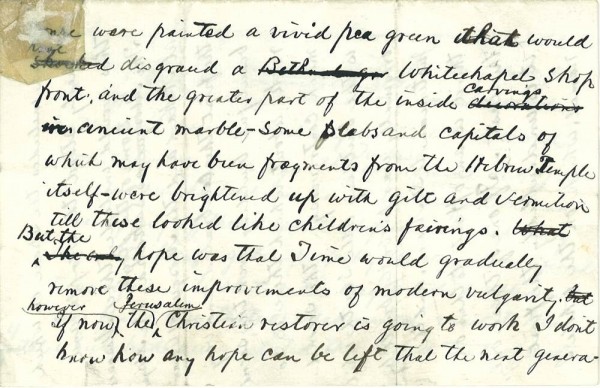 were painted a vivid pea green that would
disgraced a Whitechapel shop
carvings
front, and the greater part of the inside decorations
ancient marble, - some slabs and capitals of
which may have been fragments from the Hebrew Temple
itself - were brightened up with gilt and vermilion
till these looked like children's fairings. What
But the
The only hope was that Time would gradually
remove these improvements of modern vulgarity, but
however Jerusalem
If now, the Christian restorer is going to work I don't
know how any hope can be left that the next genera-